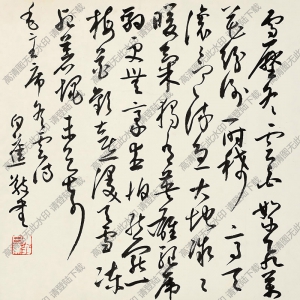 雪压冬云白絮飞万
花纷谢一时稀高天
滚滚寒流急大地微微
暖气吹独有英雄驱虎
豹更无豪杰怕熊罴
梅花欢喜漫天雪冻
死苍蝇未足奇
毛主席冬云诗